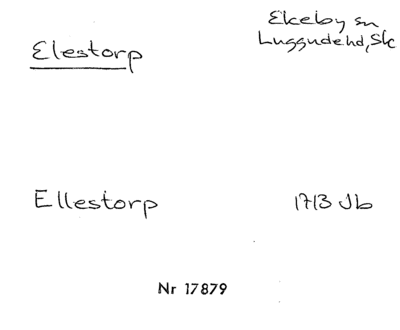 Elestorp
Ekeby sn
Luggudehd, Sk
Ellestorp
1713 Jb
Nr 17879